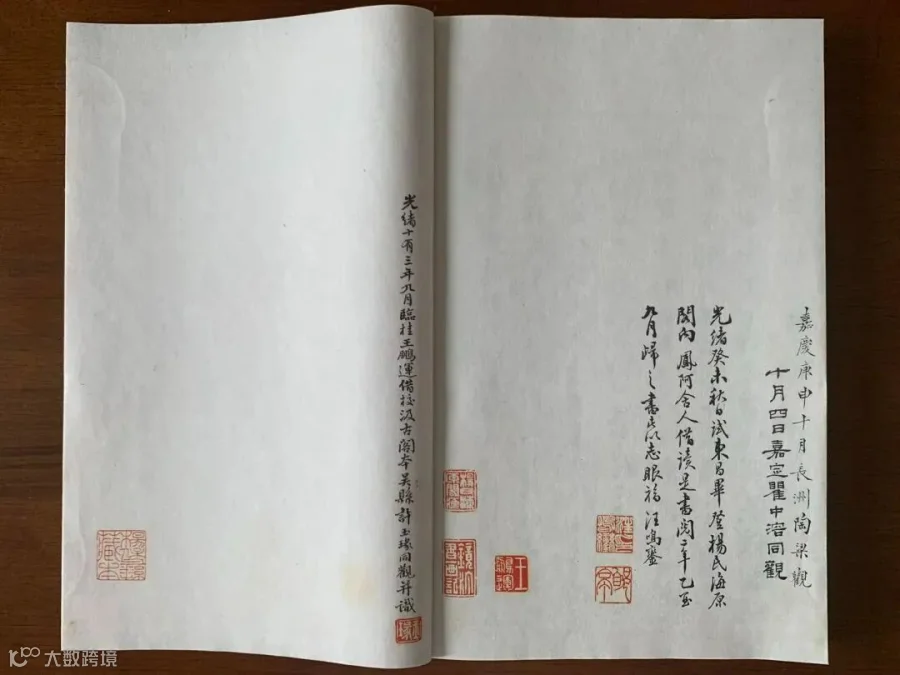 嘉慶庚申十月長洲陶梁觀
十月四日嘉定瞿中溶同觀
光緒癸未秋日試東昌畢登楊氏海原
閣內鳳阿舍人借讀是書閱二年乙酉
九月歸之書此以志眼福汪鳴鑾
王鵬運
光緒十有三年九月臨桂王鵬運借校汲古閣本吳縣許玉瑑同觀并識
大数跨境